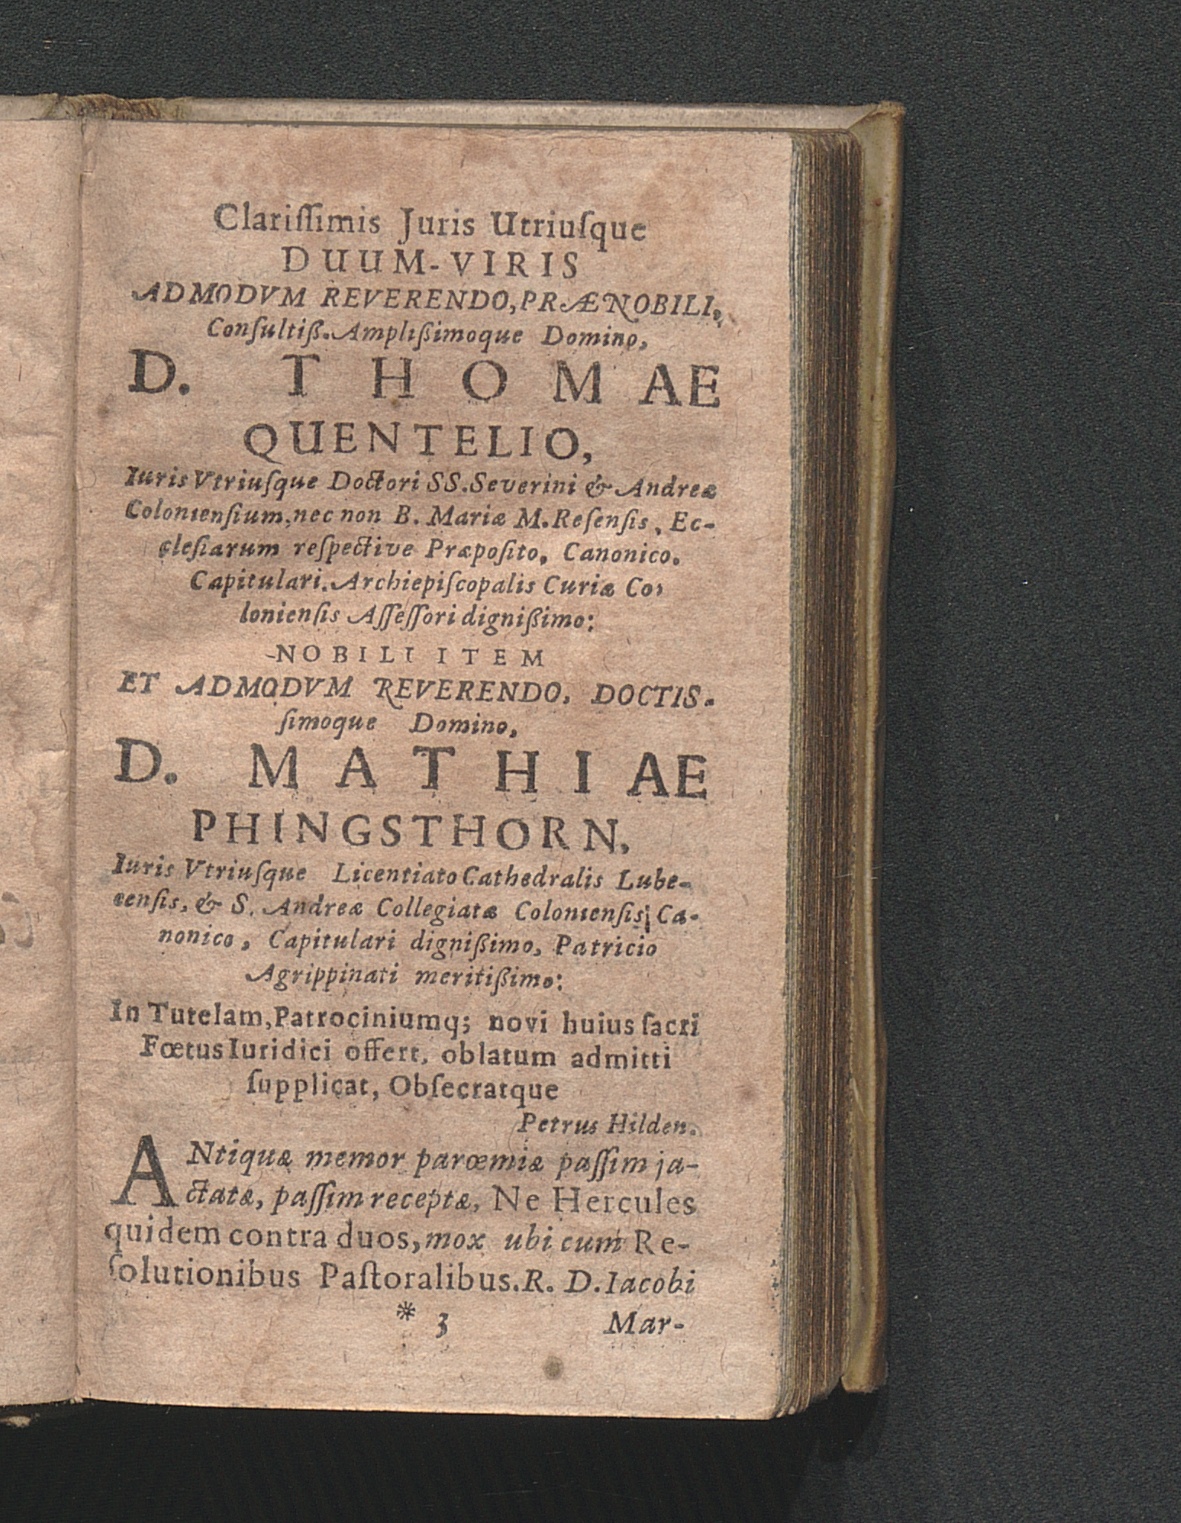 Clariſſimis Juris Utriuſque
DUUM-VIRIS
ADMODVM REVERENDO, PRÆNOBILI,
Conſultiß. Amplißimoque Domino,
D. THOMAE
QUENTELIO,
Iuris Vtriuſque Doctori SS. Severini & Andreæ
Colonienſium, nec non B. Mariæ M. Reſenſis, Ec-
cleſiarum reſpective Præpoſito, Canonico.
Capitulari. Archiepiſcopalis Curiæ Co-
lonienſis Aſſeſſori dignißimo:
NOBILI ITEM
ET ADMODVM REVERENDO, DOCTIS-
ſimoque Domino,
D. MATHIAE
PHINGSTHORN,
Iuris Vtriuſque Licentiato Cathedralis Lube-
cenſis, & S. Andreæ Collegiatæ Colonienſis, Ca-
nonico, Capitulari dignißimo, Patricio
Agrippinati meritißimo:
In Tutelam, Patrociniumq; novi huius ſacri
Fœtus Iuridici offert, oblatum admitti
ſupplicat, Obſecratque
Petrus Hilden.
ANtiquæ memor parœmiæ paſſim ja-
ctatæ, paſſim receptæ, Ne Hercules
quidem contra duos, mox ubi cum Re-
ſolutionibus Paſtoralibus. R. D. Iacobi
* 3 Mar-